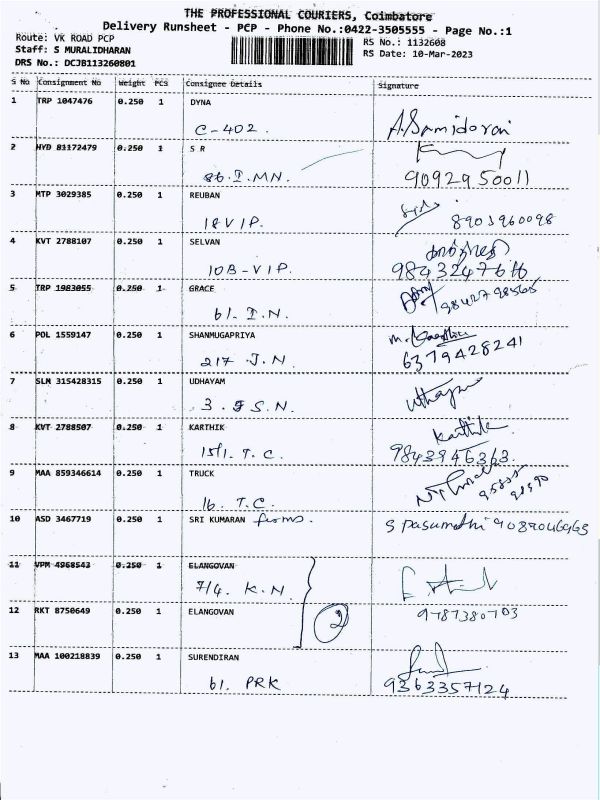 THE PROFESSIONAL COURIERS, Coimbatore
Delivery Runsheet - PCP - Phone No.:0422-3505555 - Page No.:1
Route: VK ROAD PCP
RS No.: 1132608
Staff: S MURALIDHARAN
RS Date: 10-Mar-2023
DRS No.: DCJB113260801
S No Consignment No Weight PCS Consignee Details Signature
1 TRP 1047476 0.250 1 DYNA
C-402. A.Samidorai
2 HYD 81172479 0.250 1 S R
86. I. MN. 9092950011
3 MTP 3029385 0.250 1 REUBAN
18 V I P. 8903960098
4 KVT 2788107 0.250 1 SELVAN
10B - V I P. 9843247616
5 TRP 1983055 0.250 1 GRACE
61. I. N. 9842798565
6 POL 1559147 0.250 1 SHANMUGAPRIYA
217 J. N. 6379428241
7 SLM 315428315 0.250 1 UDHAYAM
3. S. N. Uthaya
8 KVT 2788507 0.250 1 KARTHIK Karthik
15/1. T. C. 9843946363.
9 MAA 859346614 0.250 1 TRUCK
16. T.C.
10 ASD 3467719 0.250 1 SRI KUMARAN firms. S Pasumathi 9089046963
11 VPM 4968543 0.250 1 ELANGOVAN
7/4. K. N.
12 RKT 8750649 0.250 1 ELANGOVAN 9787380703
2
13 MAA 100218839 0.250 1 SURENDIRAN
61. PRK 9363357124